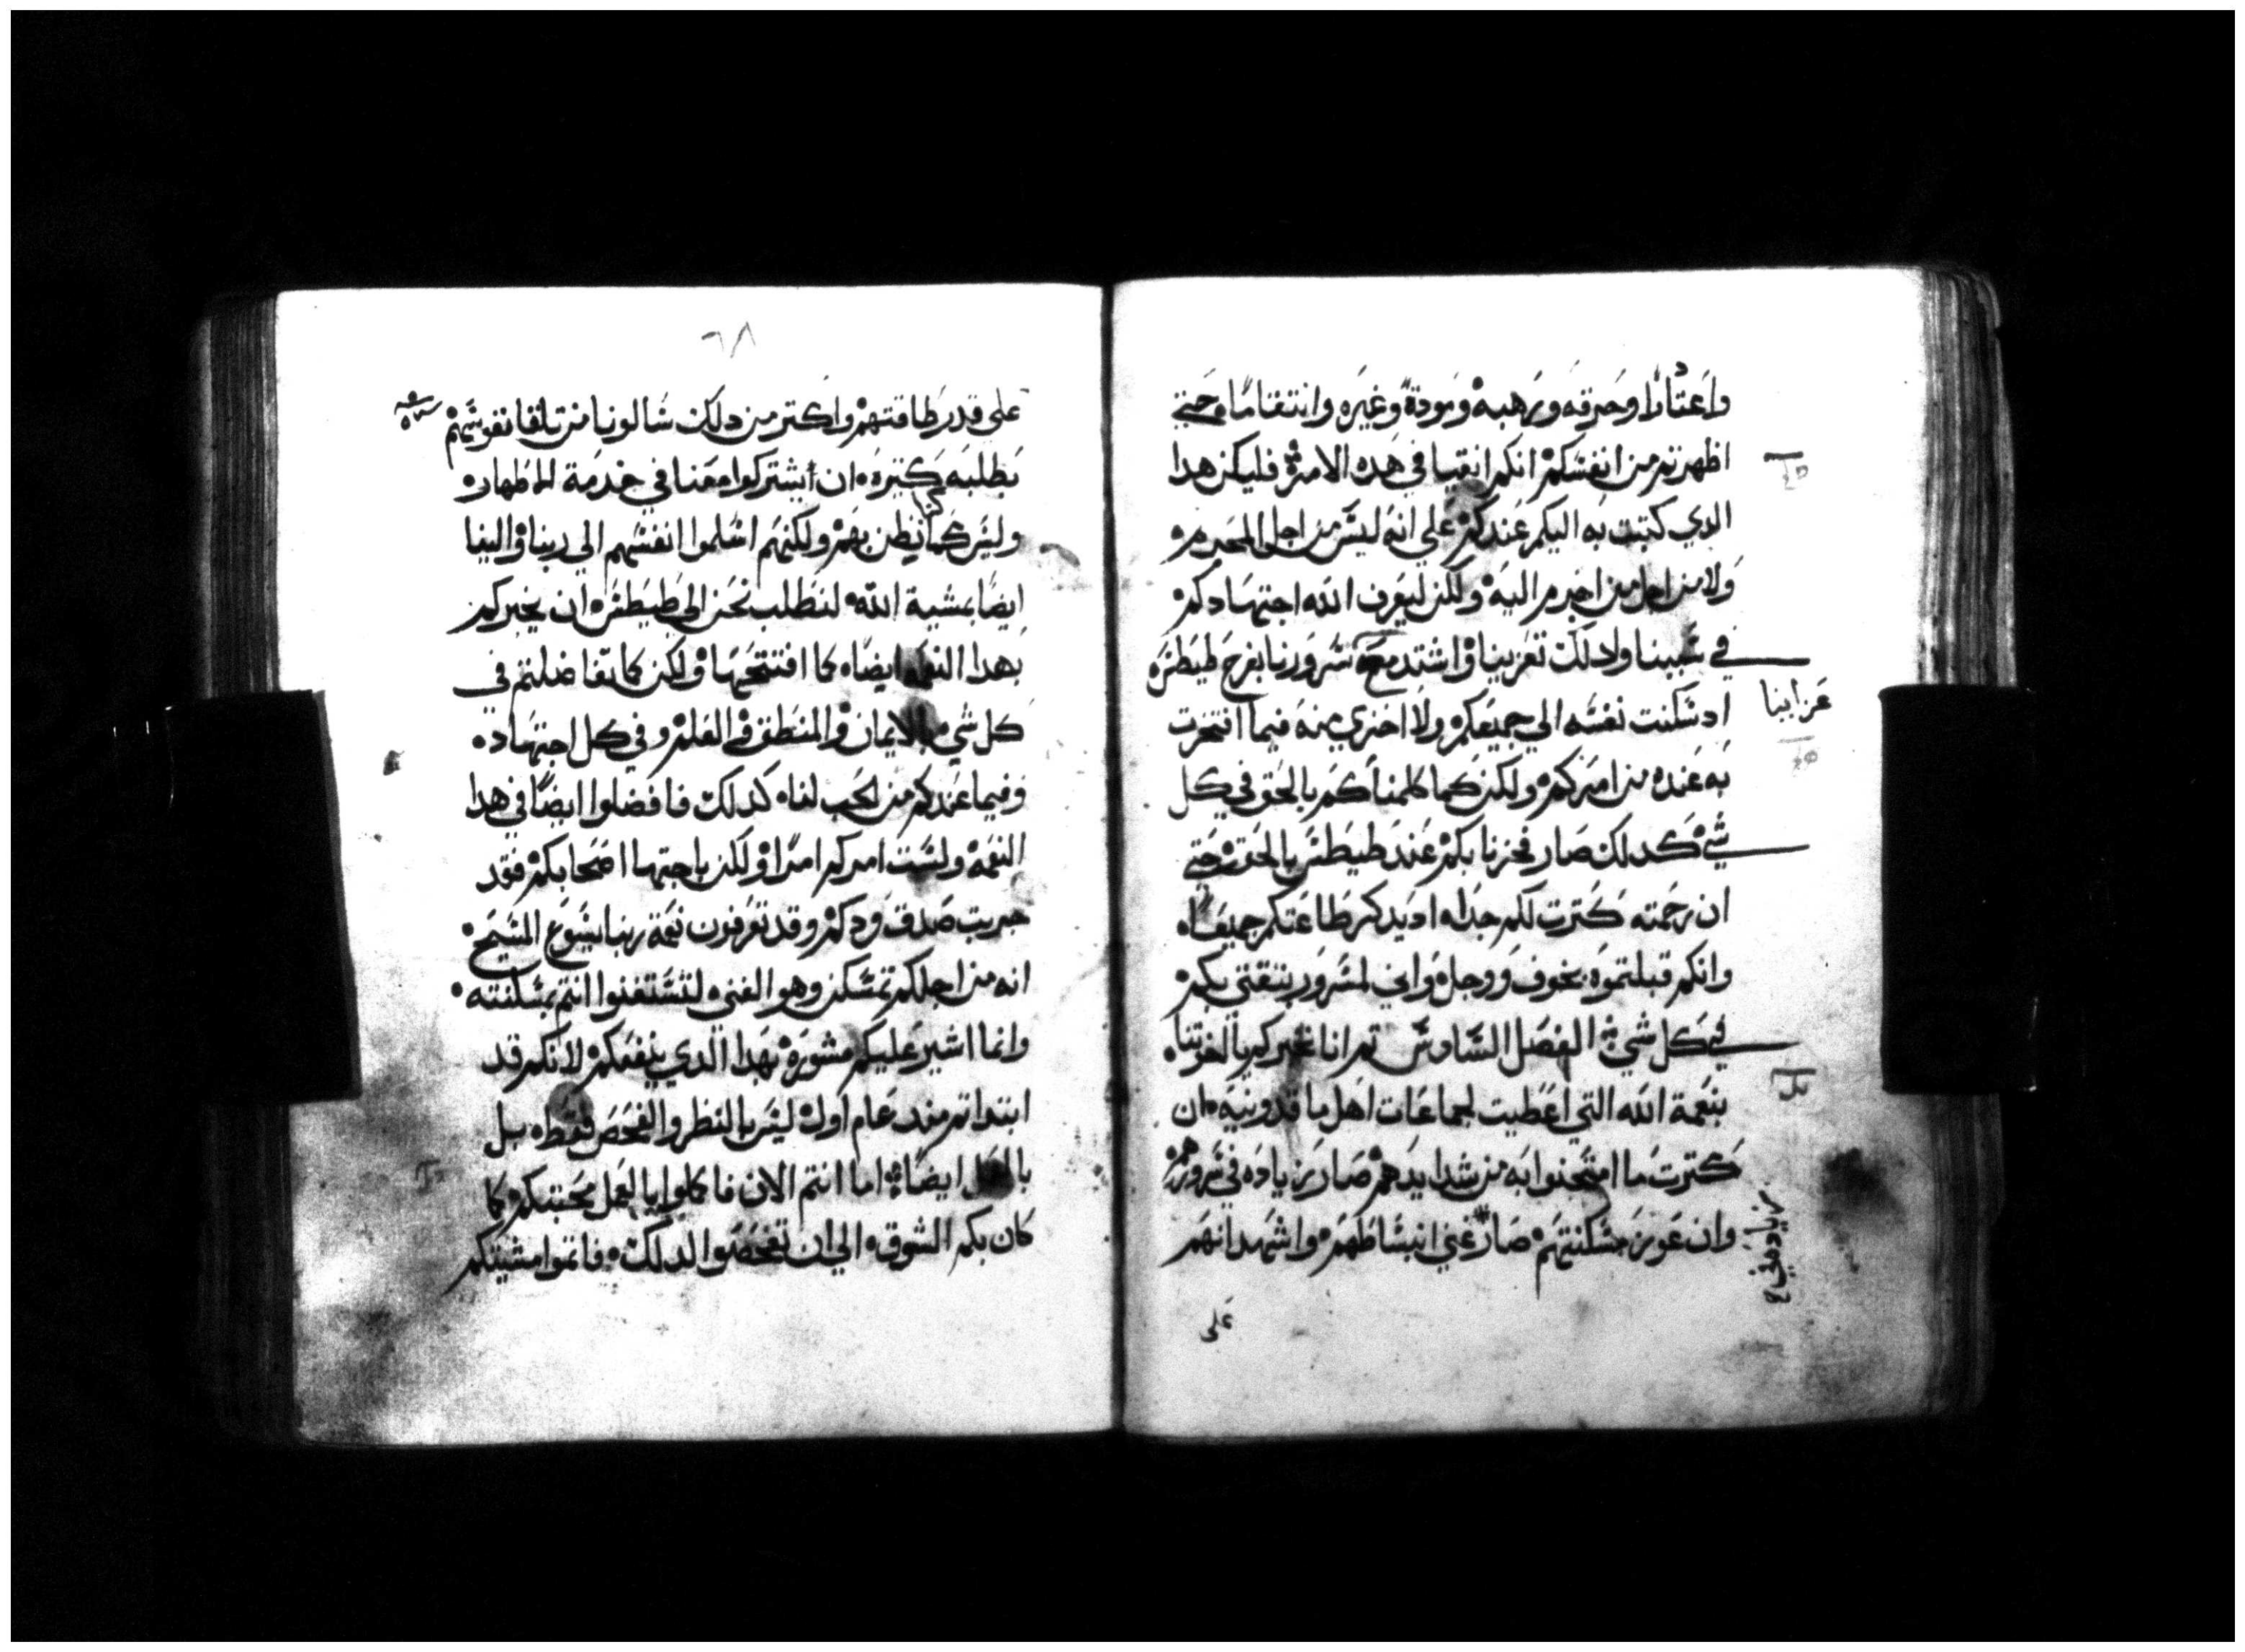 واعتدارا وحرقه ورهبه ومودة وغيره وانتقاما حتي
اظهرتم من انفسكم انكم انقيا في هده الامر فليكن هدا
الدي كتبت به اليكم عندكم علي انه ليس من اجل المجرم
ولا من اجل من اجرم اليه ولكن ليعرف الله اجتهادكم
في سببنا ولدلك تعزينا واشتد مع سرورنا بفرح طيطس
عزاينا
اد سكنت نفسه الي جميعكم ولا اخزي منه فيما افتخرت
به عنده من امركم ولكن كما كلمناكم بالحق في كل
شي كدلك صار فخرنا بكم عند طيطس بالحق حتي
ان رحمته كترت لكم جدا اد يدكر طاعتكم جميعا
وانكم قبلتموه بخوف ووجل واني لمسرور بتقتي بكم
في كل شي الفصل السادس تم انا نخبركم يا اخوتنا
بنعمة الله التي اعطيت لجماعات اهل ماقدونيه ان
كترت ما امتحنوا به من شدايدهم صار زياده في سرورهم
وان عوز مسكنتهم صار غني انبساطهم واشهد انهم
زياده في
علي
٦٨
علي قدر طاقتهم واكتر من دلك سالونا من تلقا نفوسهم
بطلبه كتيره ان يشتركوا معنا في خدمة الاطهار
وليس كما كنا نظن بهم ولكنهم اسلموا انفسهم الي ربنا والينا
ايضا بمشية الله لنطلب نحن الي طيطس ان يخبركم
بهدا النعمه ايضا كما افتتحها ولكن كما تفاضلتم في
كل شي بالايمان والمنطق والعلم وفي كل اجتهاد
وفيما عندكم من الحب لنا كدلك فافضلوا ايضا في هدا
النعمه ولست امركم امرا ولكن باجتها اصحابكم فقد
جربت صدق ودكم وقد تعرفون نعمة ربنا يسوع المسيح
انه من اجلكم تمسكن وهو الغني لتستغنوا انتم بمسكنته
وانما اشير عليكم مشورة بهدا الدي ينفعكم لانكم قد
ابتداتم مند عام اول ليس بالنظر والفحص فقط بل
بالعمل ايضا اما انتم الان فاكملوا بالعمل محبتكم كما
كان بكم الشوق الي ان تفحصوا لدلك فاتموا مشيتكم